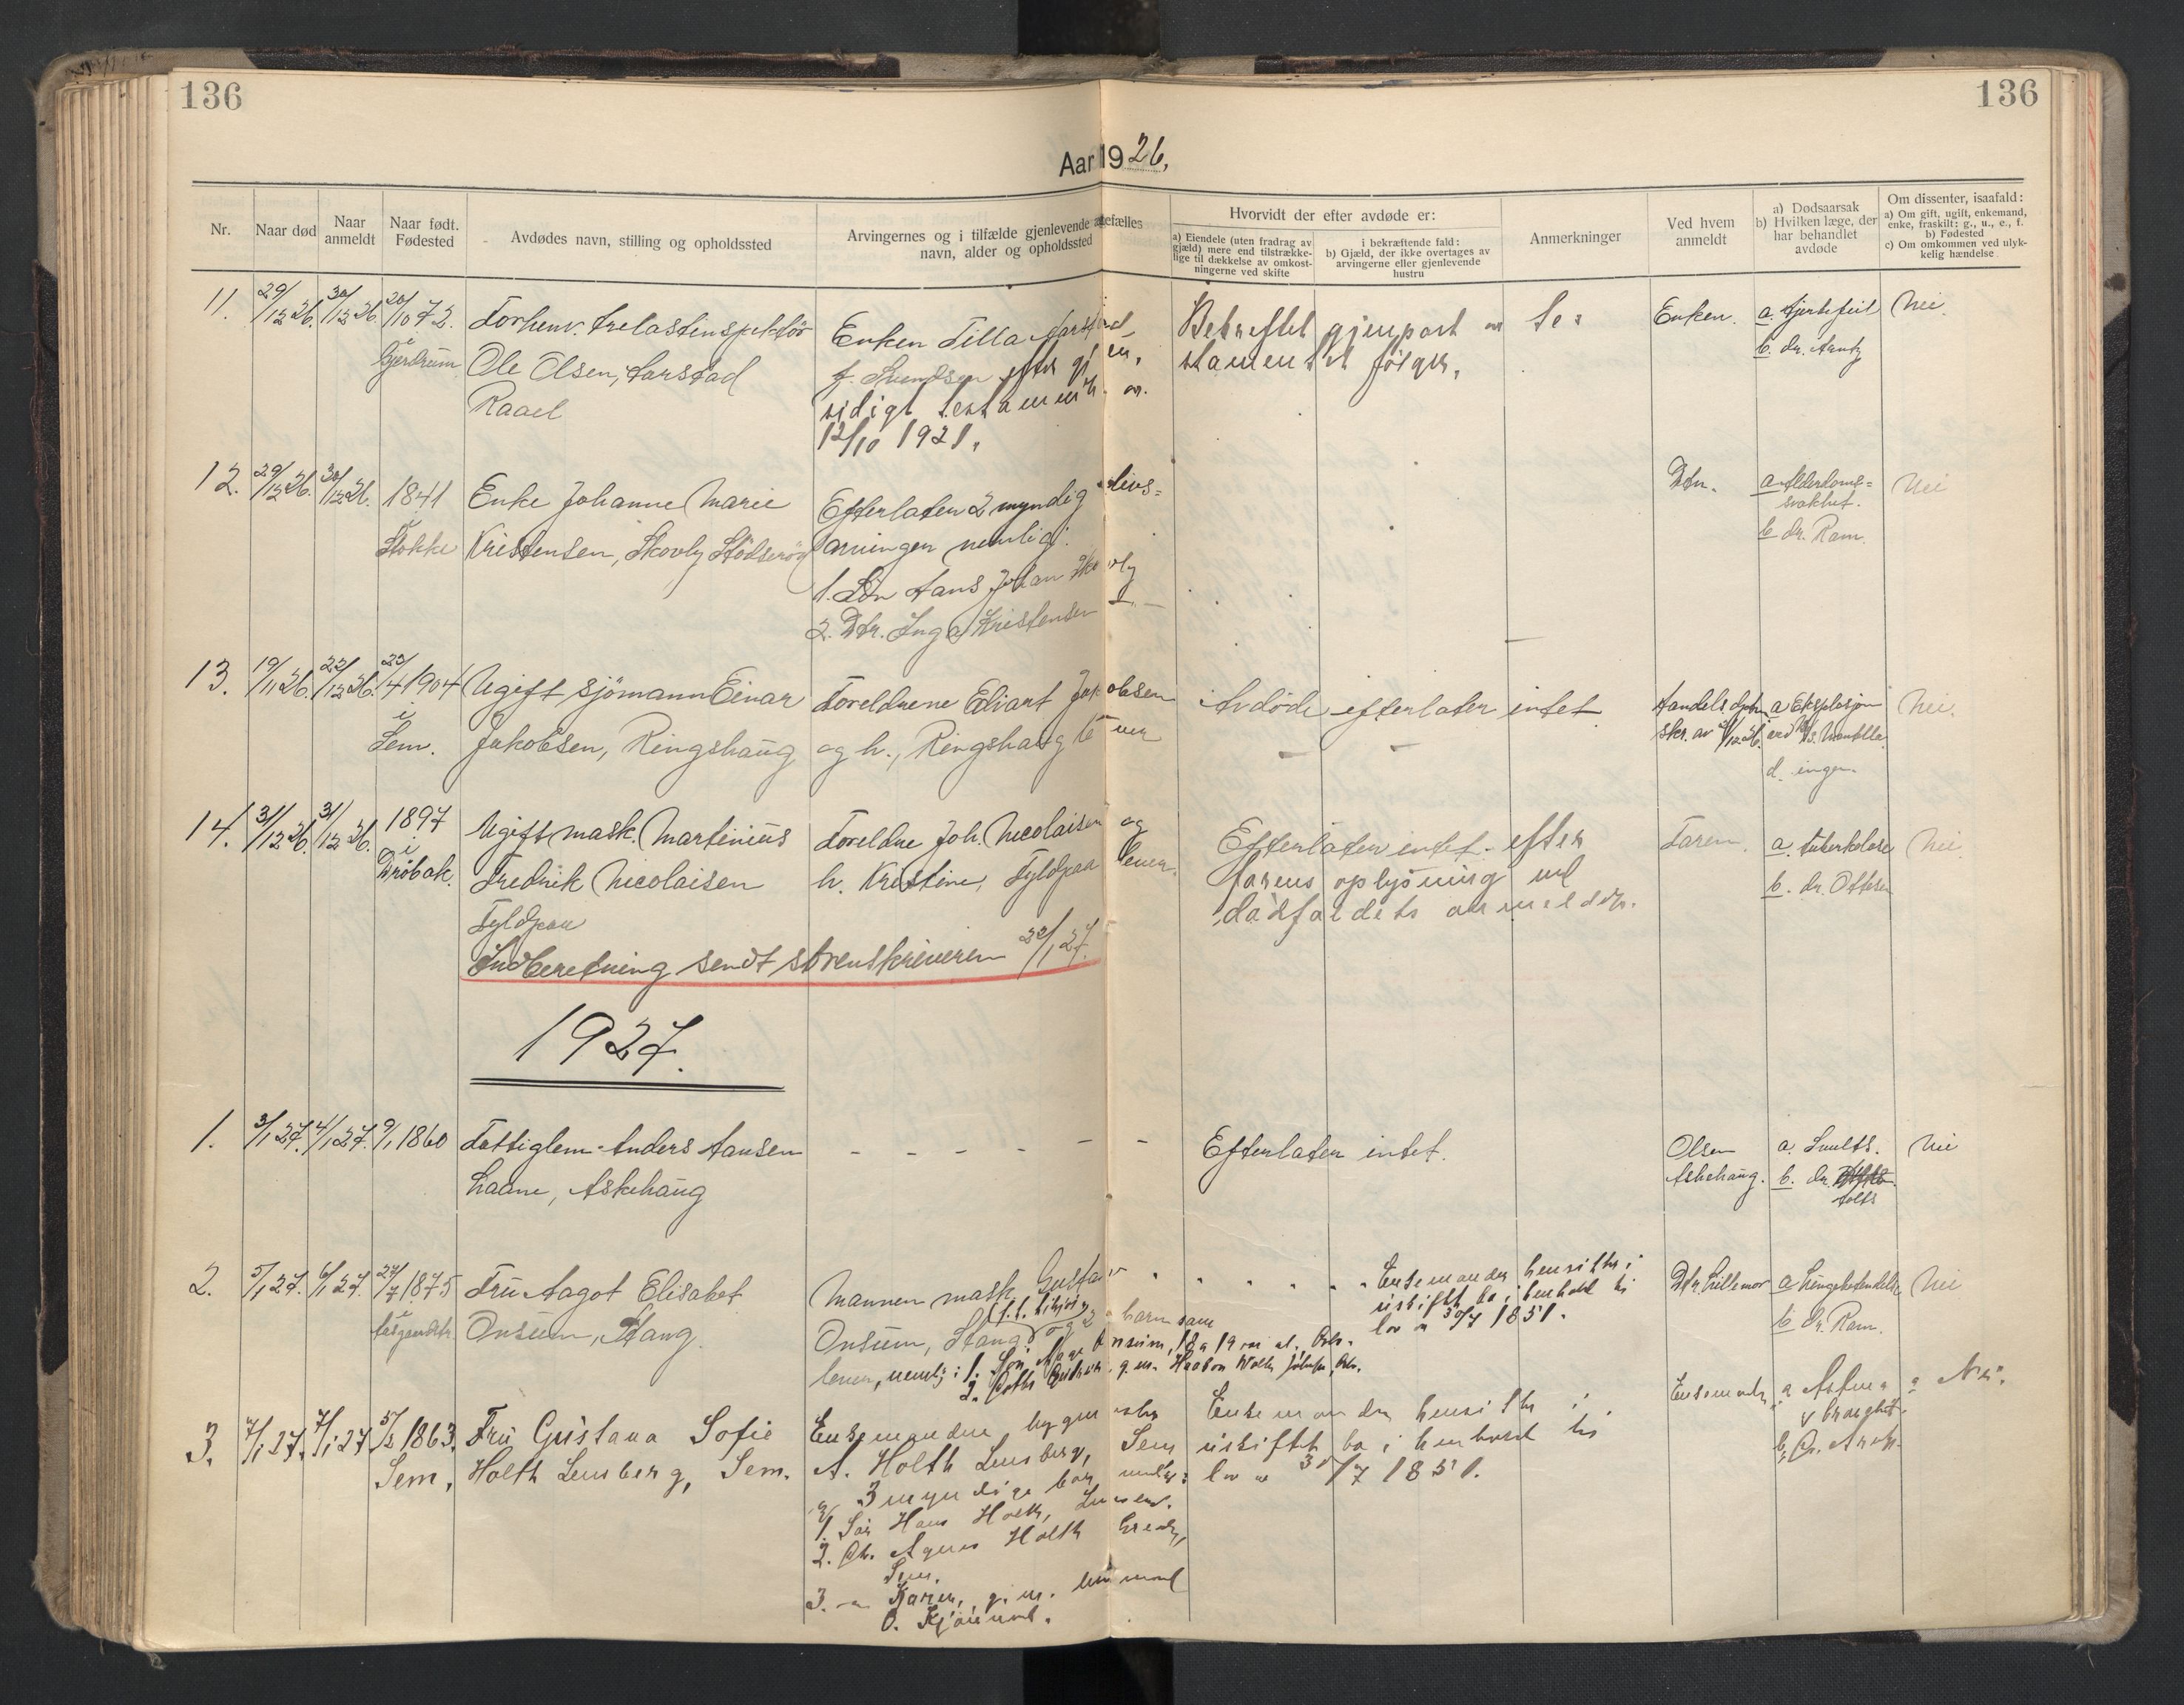 136
136
Aar 1926.
Nr.
Naar død
Naar anmeldt
Naar født. Fødested
Avdødes navn, stilling og opholdssted
Arvingernes og i tilfælde gjenlevende ægtefælles
navn, alder og opholdssted
Hvorvidt der efter avdøde er:
a) Eiendele (uten fradrag av
gjæld) mere end tilstrække-
lige til dækkelse av omkost-
ningerne ved skifte
i bekræftende fald:
b) Gjæld, der ikke overtages av
arvingerne eller gjenlevende
hustru
Anmerkninger
Ved hvem
anmeldt
a) Dødsaarsak
b) Hvilken læge, der
har behandlet
avdøde
Om dissenter, isaafald:
a) Om gift, ugift, enkemand,
enke, fraskilt: g., u., e., f.
b) Fødested
c) Om omkommen ved ulyk-
kelig hændelse
11. 29/12 26. 30/12 26. 20/10 72. i Gjerdrum
Forhenv. trelastinspektör
Ole Olsen, Harstad
Raael
Enken Tilla Harstad
f. Svendsen efter gjen.
sidigt testament av
12/10 1921.
Bekreftet gjenpart av te=
stamentet følger.
Enken.
a. Hjertefeil
b. dr. Arntz
Nei.
12. 29/12 26. 30/12 26. 1841 i Stokke
Enke Johanne Marie
Kristensen, Skovly
Efterlater 2 myndig livs=
arvinger nemlig:
1. Sön Hans Johan Skovly
2. Dtr. Inga Kristensen
Dtr.
a. Alderdoms=
svakhet.
b dr. Ram.
Nei
13. 19/11 26. 22/12 26. 23/4 1904 i Sem.
Ugift sjömann Einar
Jakobsen, Ringshaug
Foreldrene Edvart Jakobsen
og h., Ringshaug
Avdöde efterlater intet
Handelsdptm.
skr. av
a Eksplosjon
ved M/S.
d. ingen.
Nei.
14. 31/12 26. 31/12 26. 1897 i Dröbak.
Ugift mask. Martinius
Fredrik Nicolaisen
Fyldpaa
Foreldre Joh. Nicolaisen og
h. Kristine, Fyldpaa lever.
Efterlater intet efter
farens oplysning ved
dödsfaldets anmeldes.
Faren.
a. tuberkelose
b. dr. Ottesen
Nei.
Indberetning sendt sorenskriveren 22/1 27.
1927.
1. 3/1 27. 4/1 27. 9/1 1860
Fattiglem Anders Hansen
Laane, Askehaug
Efterlater intet.
Olsen
Askehaug.
a. Smelts.
b. dr.
Holts
Nei
2. 5/1 27. 6/1 27. 27/7 1875
Fru Aagot Elisabet
Onsum, Stang.
Mannen mask. Gustav
Onsum, Stang og 2 barn som
lever, nemlig: 1. Sön Aage Onsum, 18 a 19 aar
g. m. Haakon
Enkemanden hensitter i
uskiftet bo i henhold til
lov av 30/7 1851.
Dtr. Lillemor
a Lungebetendelse
b dr. Ram.
Nei
3. 7/1 27. 7/1 27 5/2 1863. Sem,
Fru Gustava Sofie
Holth Lensberg, Sem.
Enkemanden bygmester
A. Holth Lensberg, Sem
og 3 myndige barn, nemlig:
1. Sön Hans Holth,
2. Dtr. Agnes Holth
Sem.
3. - Karen, g. m.
O.
Enkemanden hensitter i
uskiftet bo i henhold til
lov av 30/7 1851.
Enkemanden
a Astma
v
b, Dr. Arntz
a Nei.